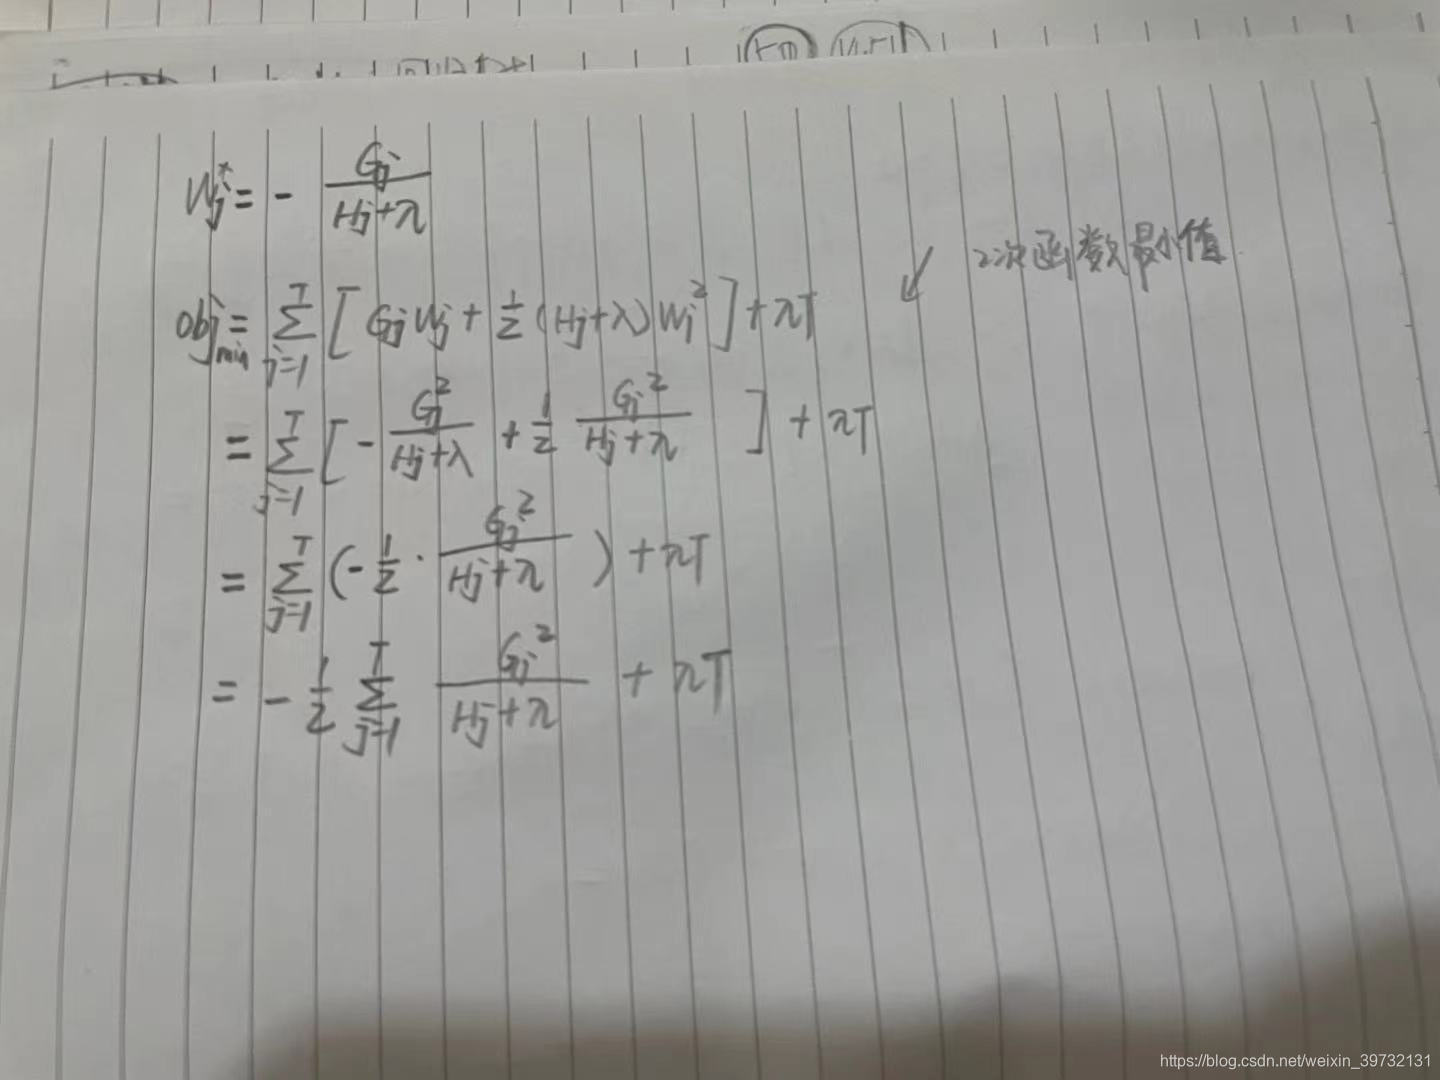 Wj* = - Gj / (Hj+λ)
2次函数最小值
obj min = Σ_{j=1}^{T} [ Gj Wj + 1/2 (Hj+λ) Wj² ] + λT
= Σ_{j=1}^{T} [ - Gj² / (Hj+λ) + 1/2 Gj² / (Hj+λ) ] + λT
= Σ_{j=1}^{T} ( - 1/2 · Gj² / (Hj+λ) ) + λT
= - 1/2 Σ_{j=1}^{T} Gj² / (Hj+λ) + λT
https://blog.csdn.net/weixin_39732131